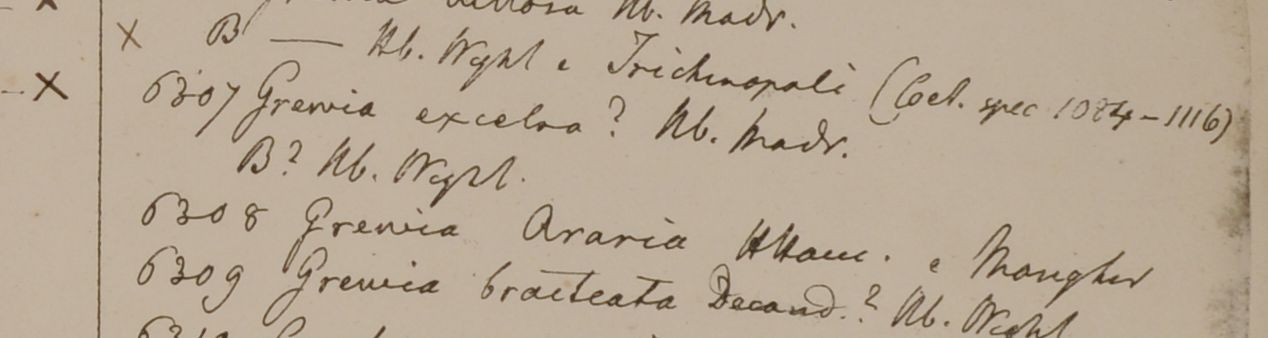 villosa Hb. Madr.
X B — Hb. Wght e Trichinopoli (Cel. spec 1084-1116)
-X 6307 Grewia excelsa? Hb. Madr.
B? Hb. Wght.
6308 Grewia Araria HHam. e Mongher
6309 Grewia bracteata Decand.? Hb. Wght